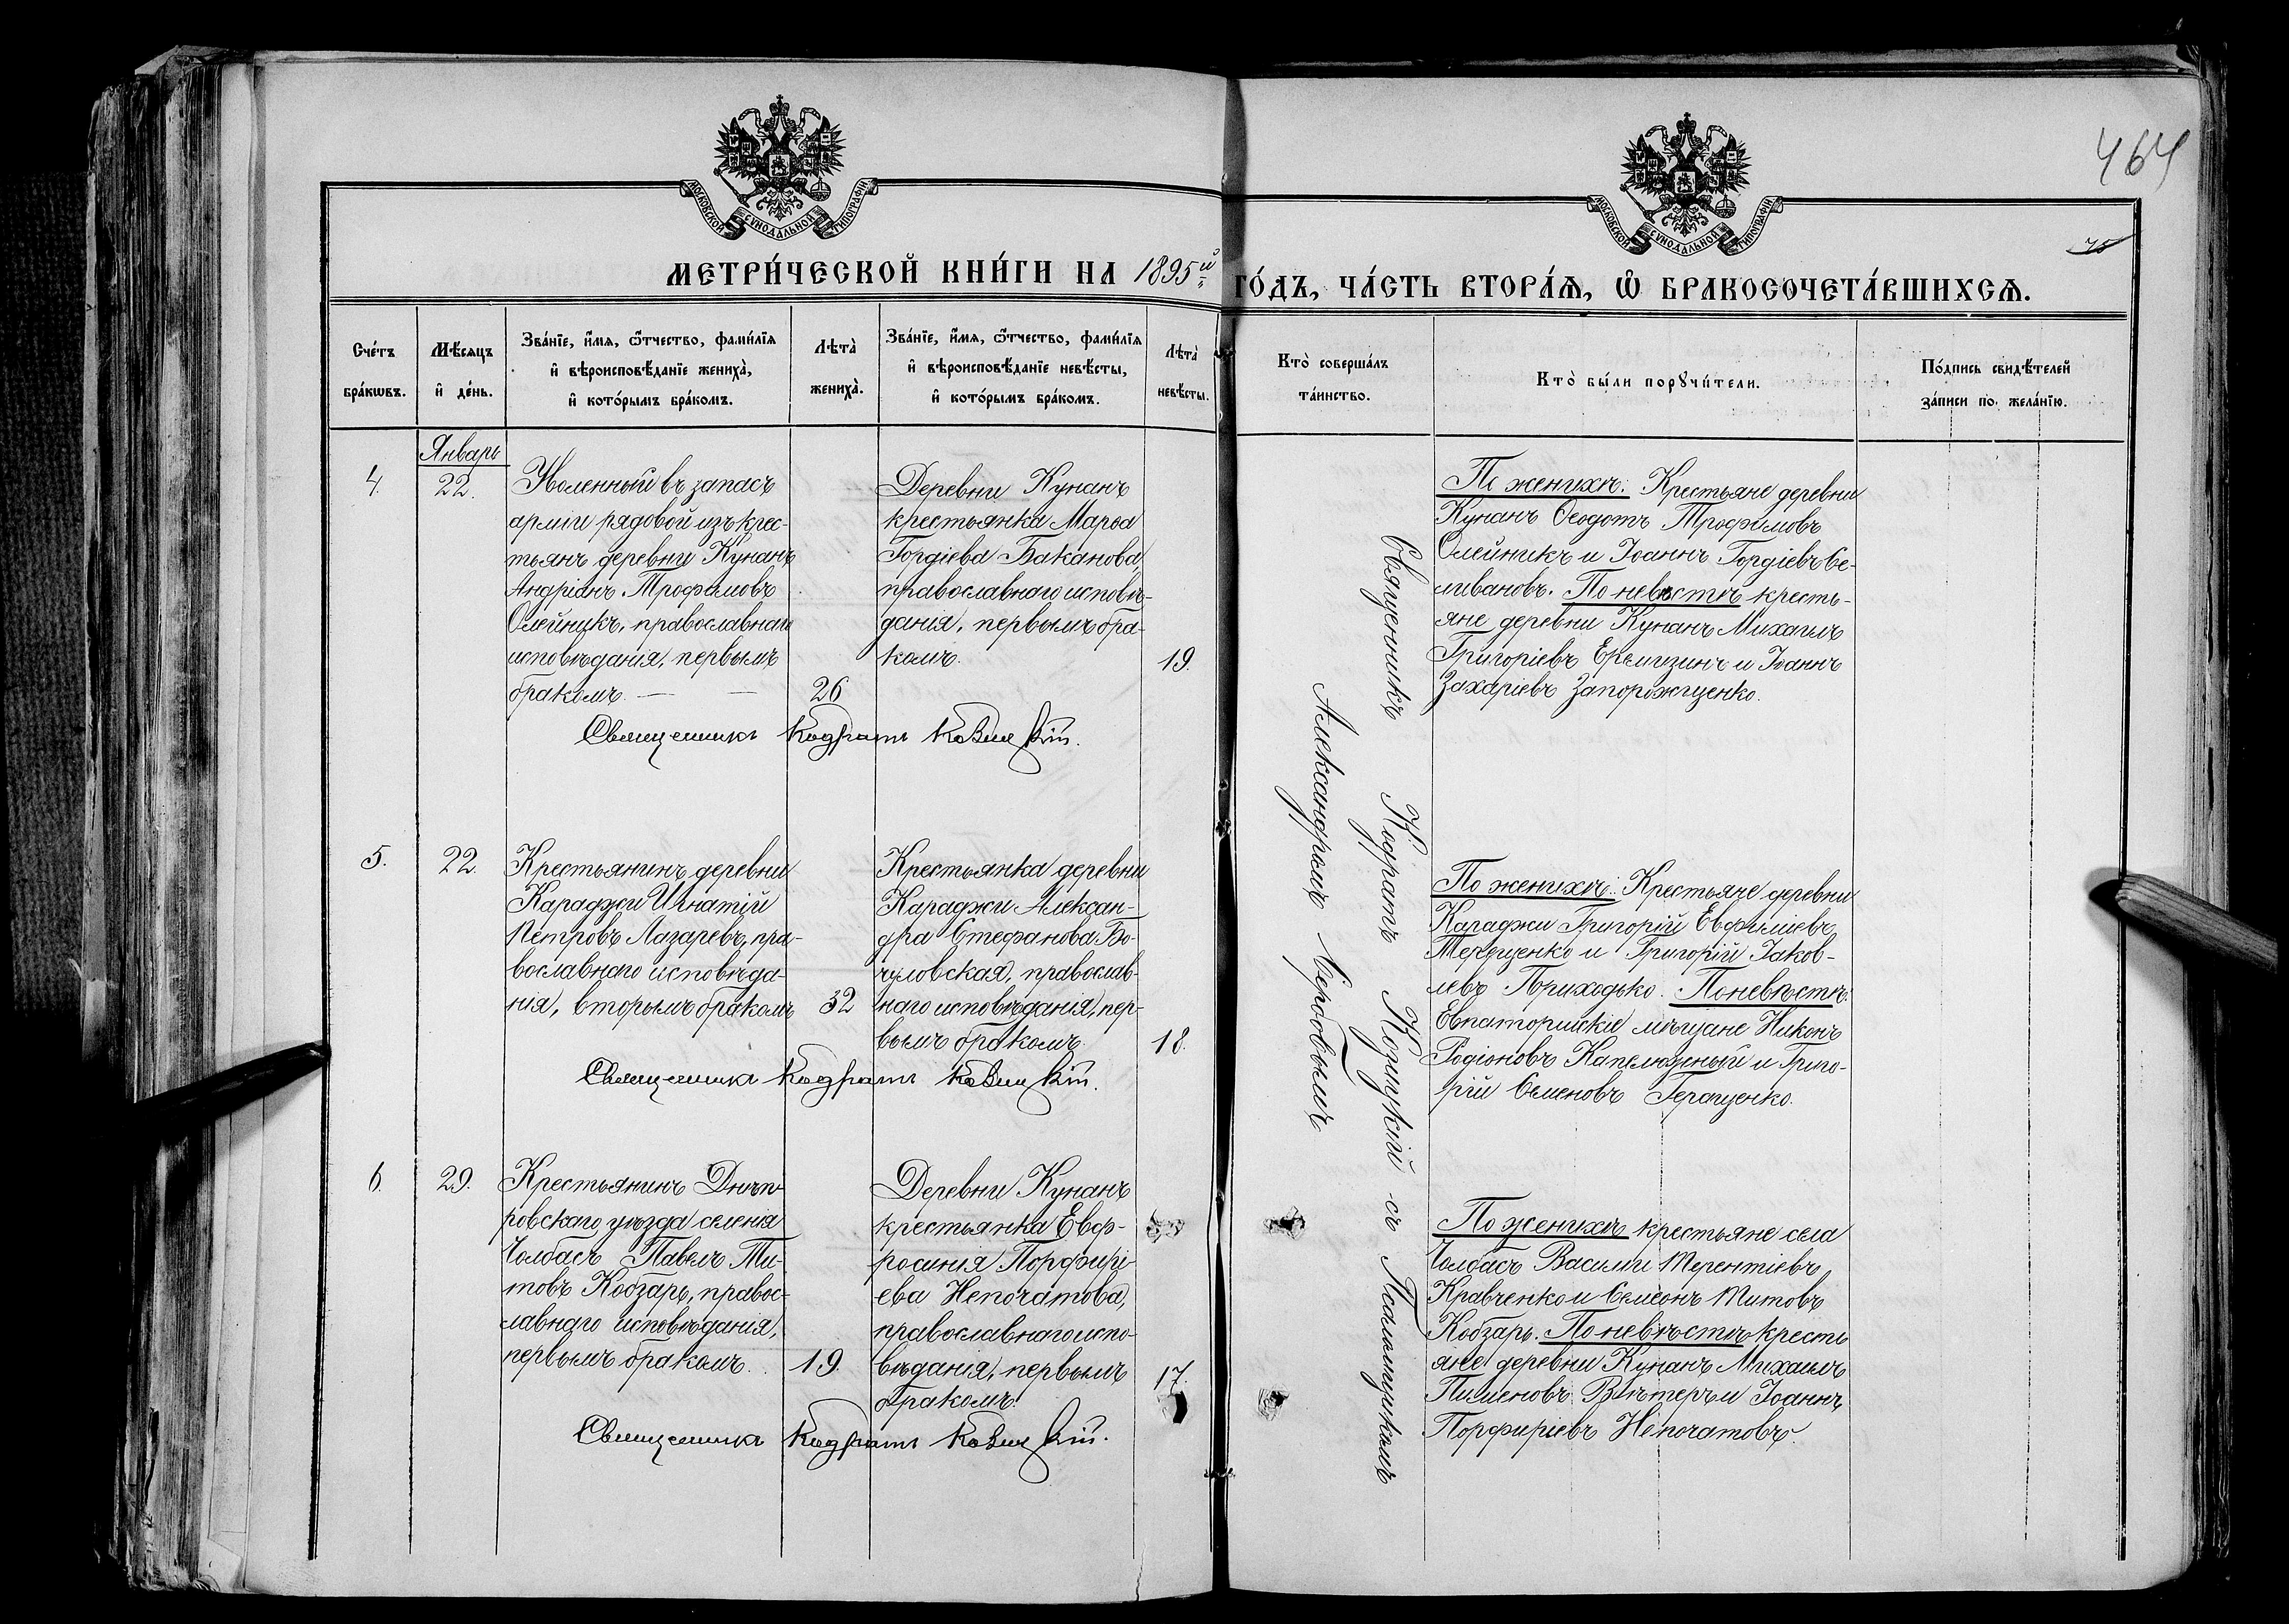 464
75
МОСКОВСКОЙ СѴНОДАЛЬНОЙ ТИПОГРАФІИ
МОСКОВСКОЙ СѴНОДАЛЬНОЙ ТИПОГРАФІИ
МЕТРИ́ЧЕСКОЙ КНИ́ГИ НА 1895й ГО́ДЪ, ЧА́СТЬ ВТОРА́Ѧ, Ѽ БРАКОСОЧЕТА́ВШИХСѦ.
Сче́тъ
бра́кѡвъ.
Мѣ́сяцъ
и҆ де́нь.
Зва́нїе, и҆́мѧ, ѻ҆́тчество, фами́лїѧ
и҆ вѣроисповѣ́данїе жениха̀,
и҆ кото́рымъ бра́комъ.
Лѣта̀
жениха̀.
Зва́нїе, и҆́мѧ, ѻ҆́тчество, фами́лїѧ
и҆ вѣроисповѣ́данїе невѣ́сты,
и҆ кото́рымъ бра́комъ.
Лѣта̀
невѣ́сты.
Кто̀ соверша́лъ
та́инство.
Кто̀ бы́ли порꙋчи́тели.
По́дпись свидѣ́телей
за́писи по жела́нїю.
Январь
4.
22.
Уволенный въ запасъ
арміи рядовой изъ крес-
тьянъ деревни Кунанъ
Андріанъ Трофимовъ
Олейникъ, православнаго
исповѣданія, первымъ
бракомъ.
26
Деревни Кунанъ
крестьянка Марѳа
Гордіева Баканова,
православнаго исповѣ-
данія, первымъ бра-
комъ.
19.
Священникъ Кодратъ
По женихѣ: Крестьяне деревни
Кунанъ Ѳеодотъ Трофимовъ
Олейникъ и Іоаннъ Гордіевъ Се-
ливановъ. По невѣстѣ кресть-
яне деревни Кунанъ Михаилъ
Григоріевъ Еремизинъ и Іоаннъ
Захаріевъ Запорожченко.
Священникъ Кодратъ съ Псаломщикомъ
Александромъ Сербовымъ
5.
22.
Крестьянинъ деревни
Караджи Игнатій
Петровъ Лазаревъ, пра-
вославнаго исповѣда-
нія, вторымъ бракомъ
32
Крестьянка деревни
Караджи Алексан-
дра Стефанова Бо-
чуловская, православ-
наго исповѣданія, пер-
вымъ бракомъ.
18.
Священникъ Кодратъ
По женихѣ: Крестьяне деревни
Караджи Григорій Евфиміевъ
Терещенко и Григорій Іаков-
левъ Приходько. По невѣстѣ:
Евпаторийскіе мѣщане Никонъ
Родіоновъ Капелюшный и Григо-
рій Семеновъ Геращенко.
6.
29.
Крестьянинъ Днѣп-
ровскаго уѣзда селенія
Чолбасъ Павелъ Ти-
товъ Кобзарь, правос-
лавнаго исповѣданія,
первымъ бракомъ.
19.
Деревни Кунанъ
крестьянка Евф-
росинія Порфирі-
ева Непочатова,
православнаго испо-
вѣданія, первымъ
бракомъ.
17.
Священникъ Кодратъ
По женихѣ крестьяне села
Чолбасъ Василій Терентіевъ
Кравченко и Симеонъ Титовъ
Кобзарь. По невѣстѣ кресть
яне деревни Кунанъ Михаилъ
Пименовъ Вѣтеръ и Іоаннъ
Порфиріевъ Непочатовъ.